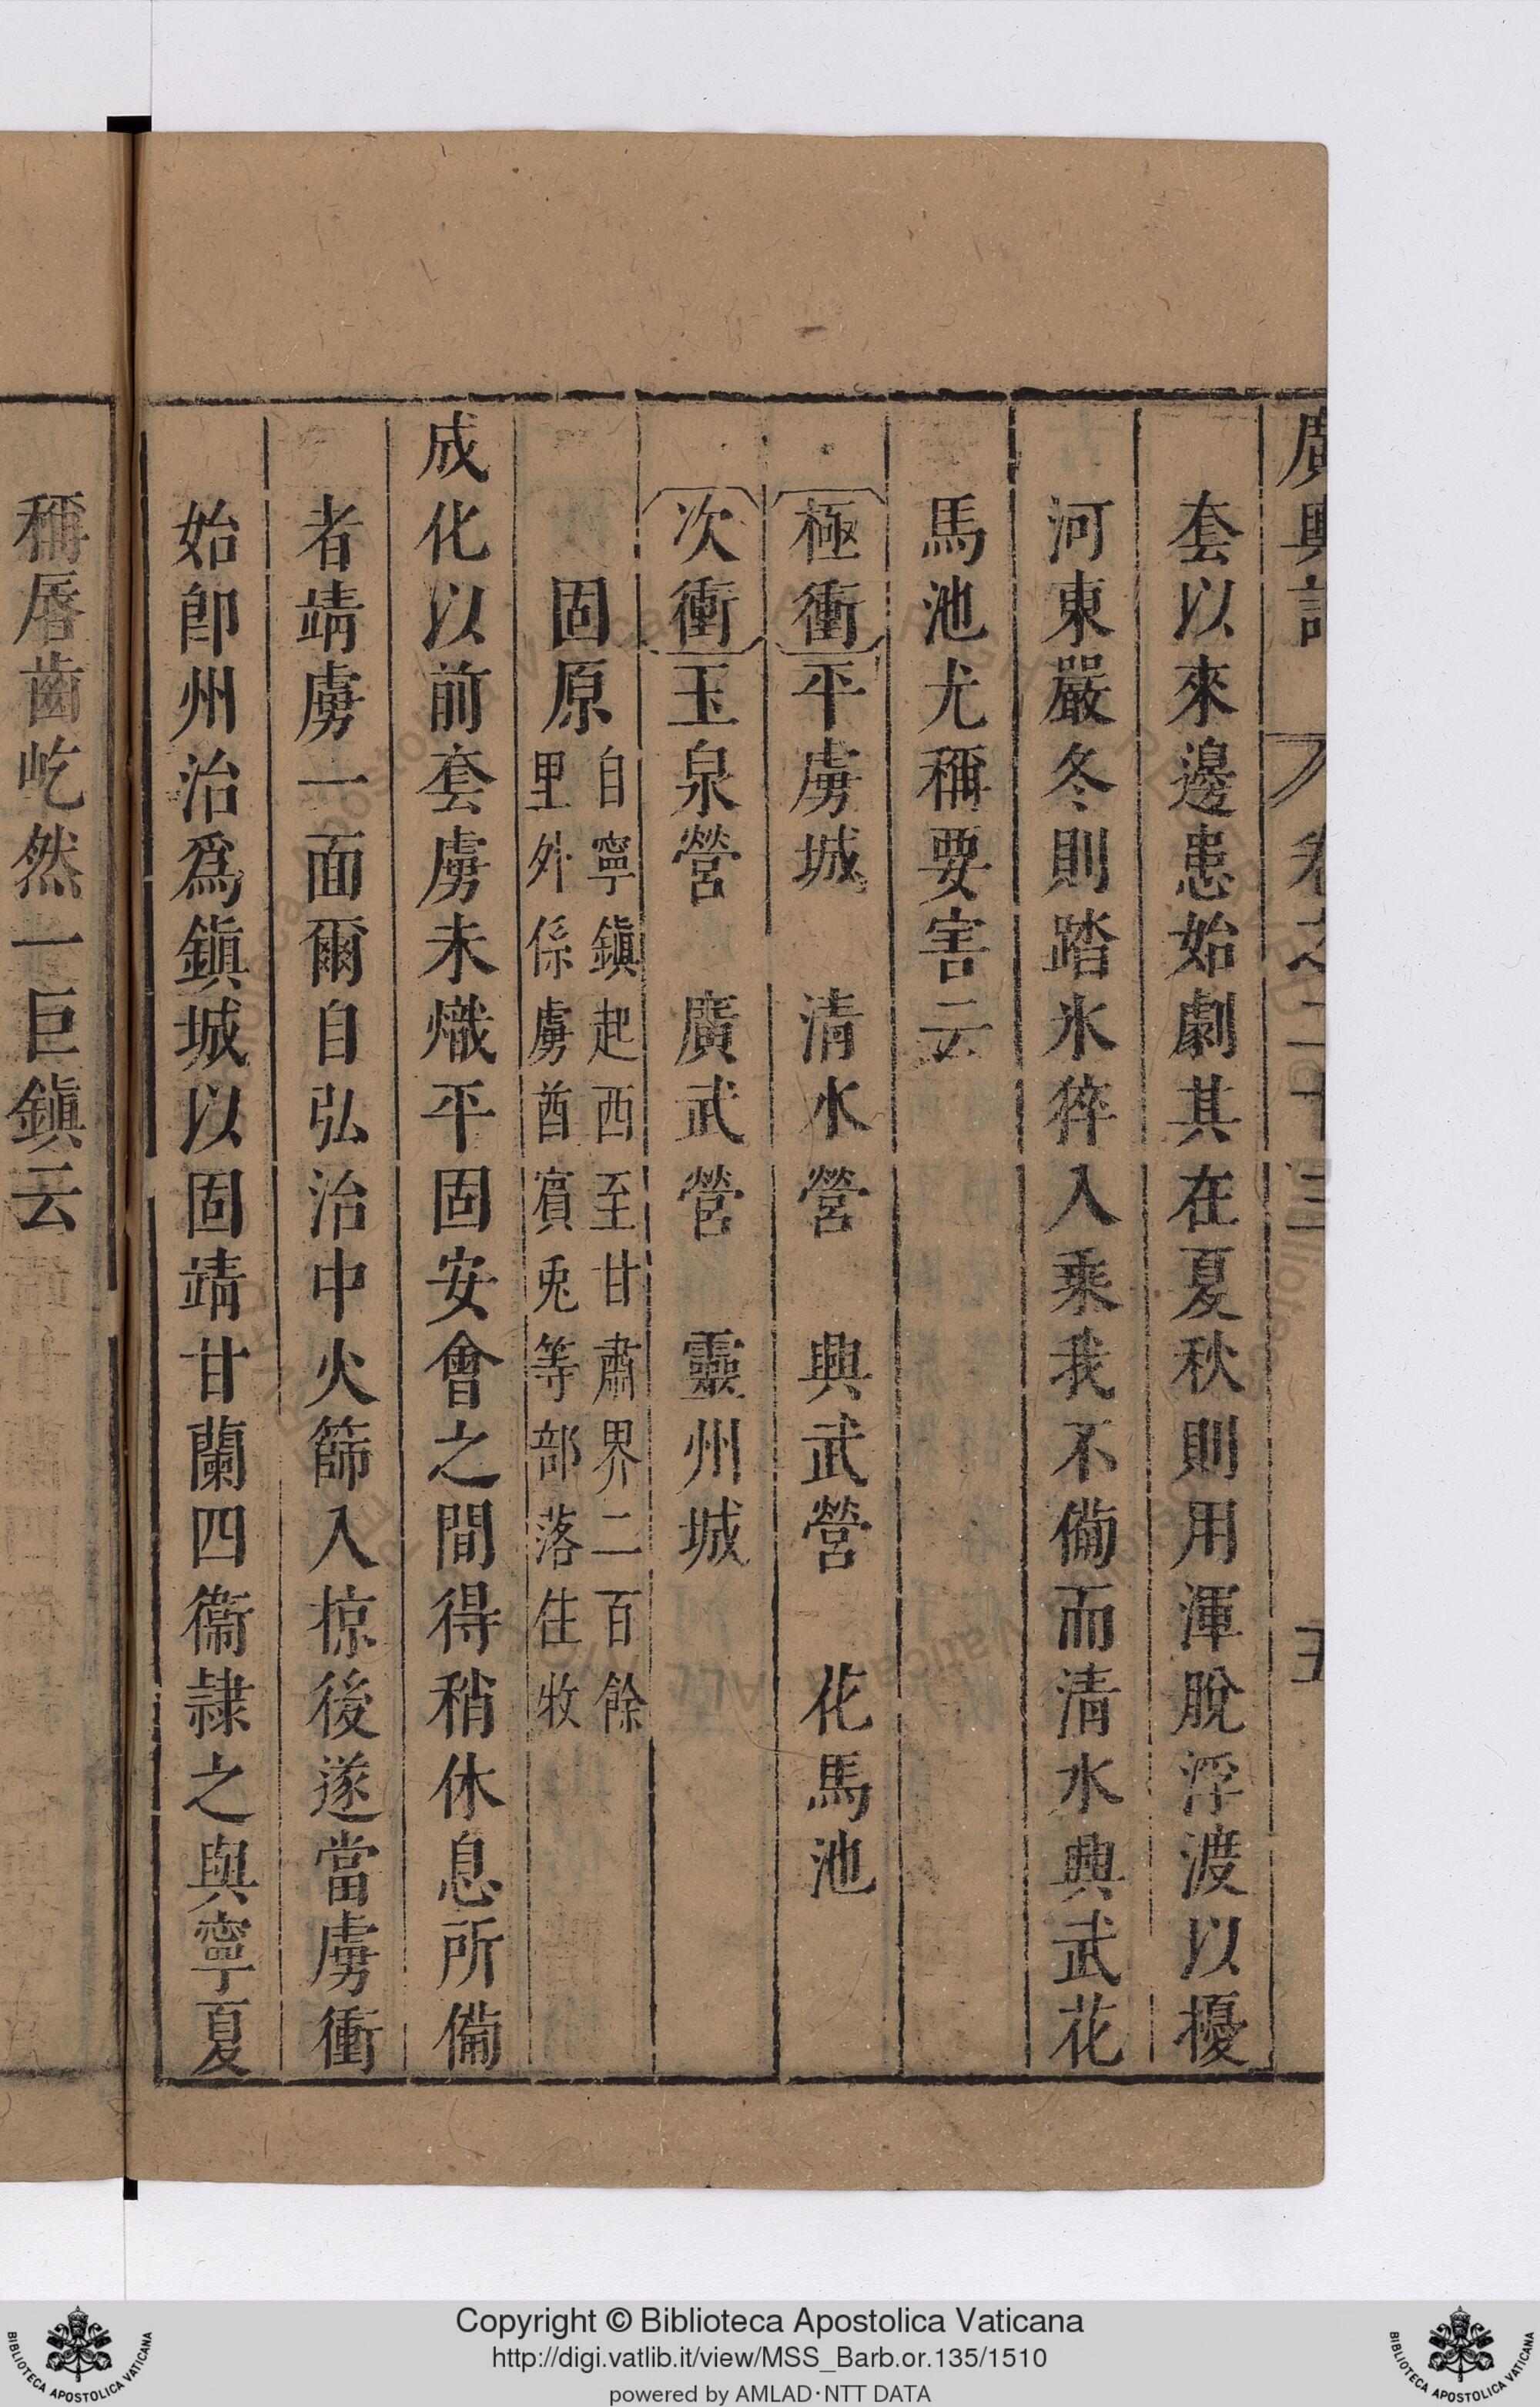 廣輿記 卷之二十三 五
套以來邊患始劇其在夏秋則用渾脫浮渡以擾
河東嚴冬則踏氷猝入乘我不備而清水興武花
馬池尤稱要害云
極衝平虜城 清水營 興武營 花馬池
次衝玉泉營 廣武營 靈州城
固原自寧鎮起西至甘肅界二百餘
里外係虜酋賓兎等部落住牧
成化以前套虜未熾平固安會之間得稍休息所備
者靖虜一面爾自弘治中火篩入掠後遂當虜衝
始卽州治爲鎮城以固靖甘蘭四衞隷之與寧夏
稱唇齒屹然一巨鎮云
Copyright © Biblioteca Apostolica Vaticana
http://digi.vatlib.it/view/MSS_Barb.or.135/1510
powered by AMLAD·NTT DATA
BIBLIOTECA APOSTOLICA VATICANA
BIBLIOTECA APOSTOLICA VATICANA